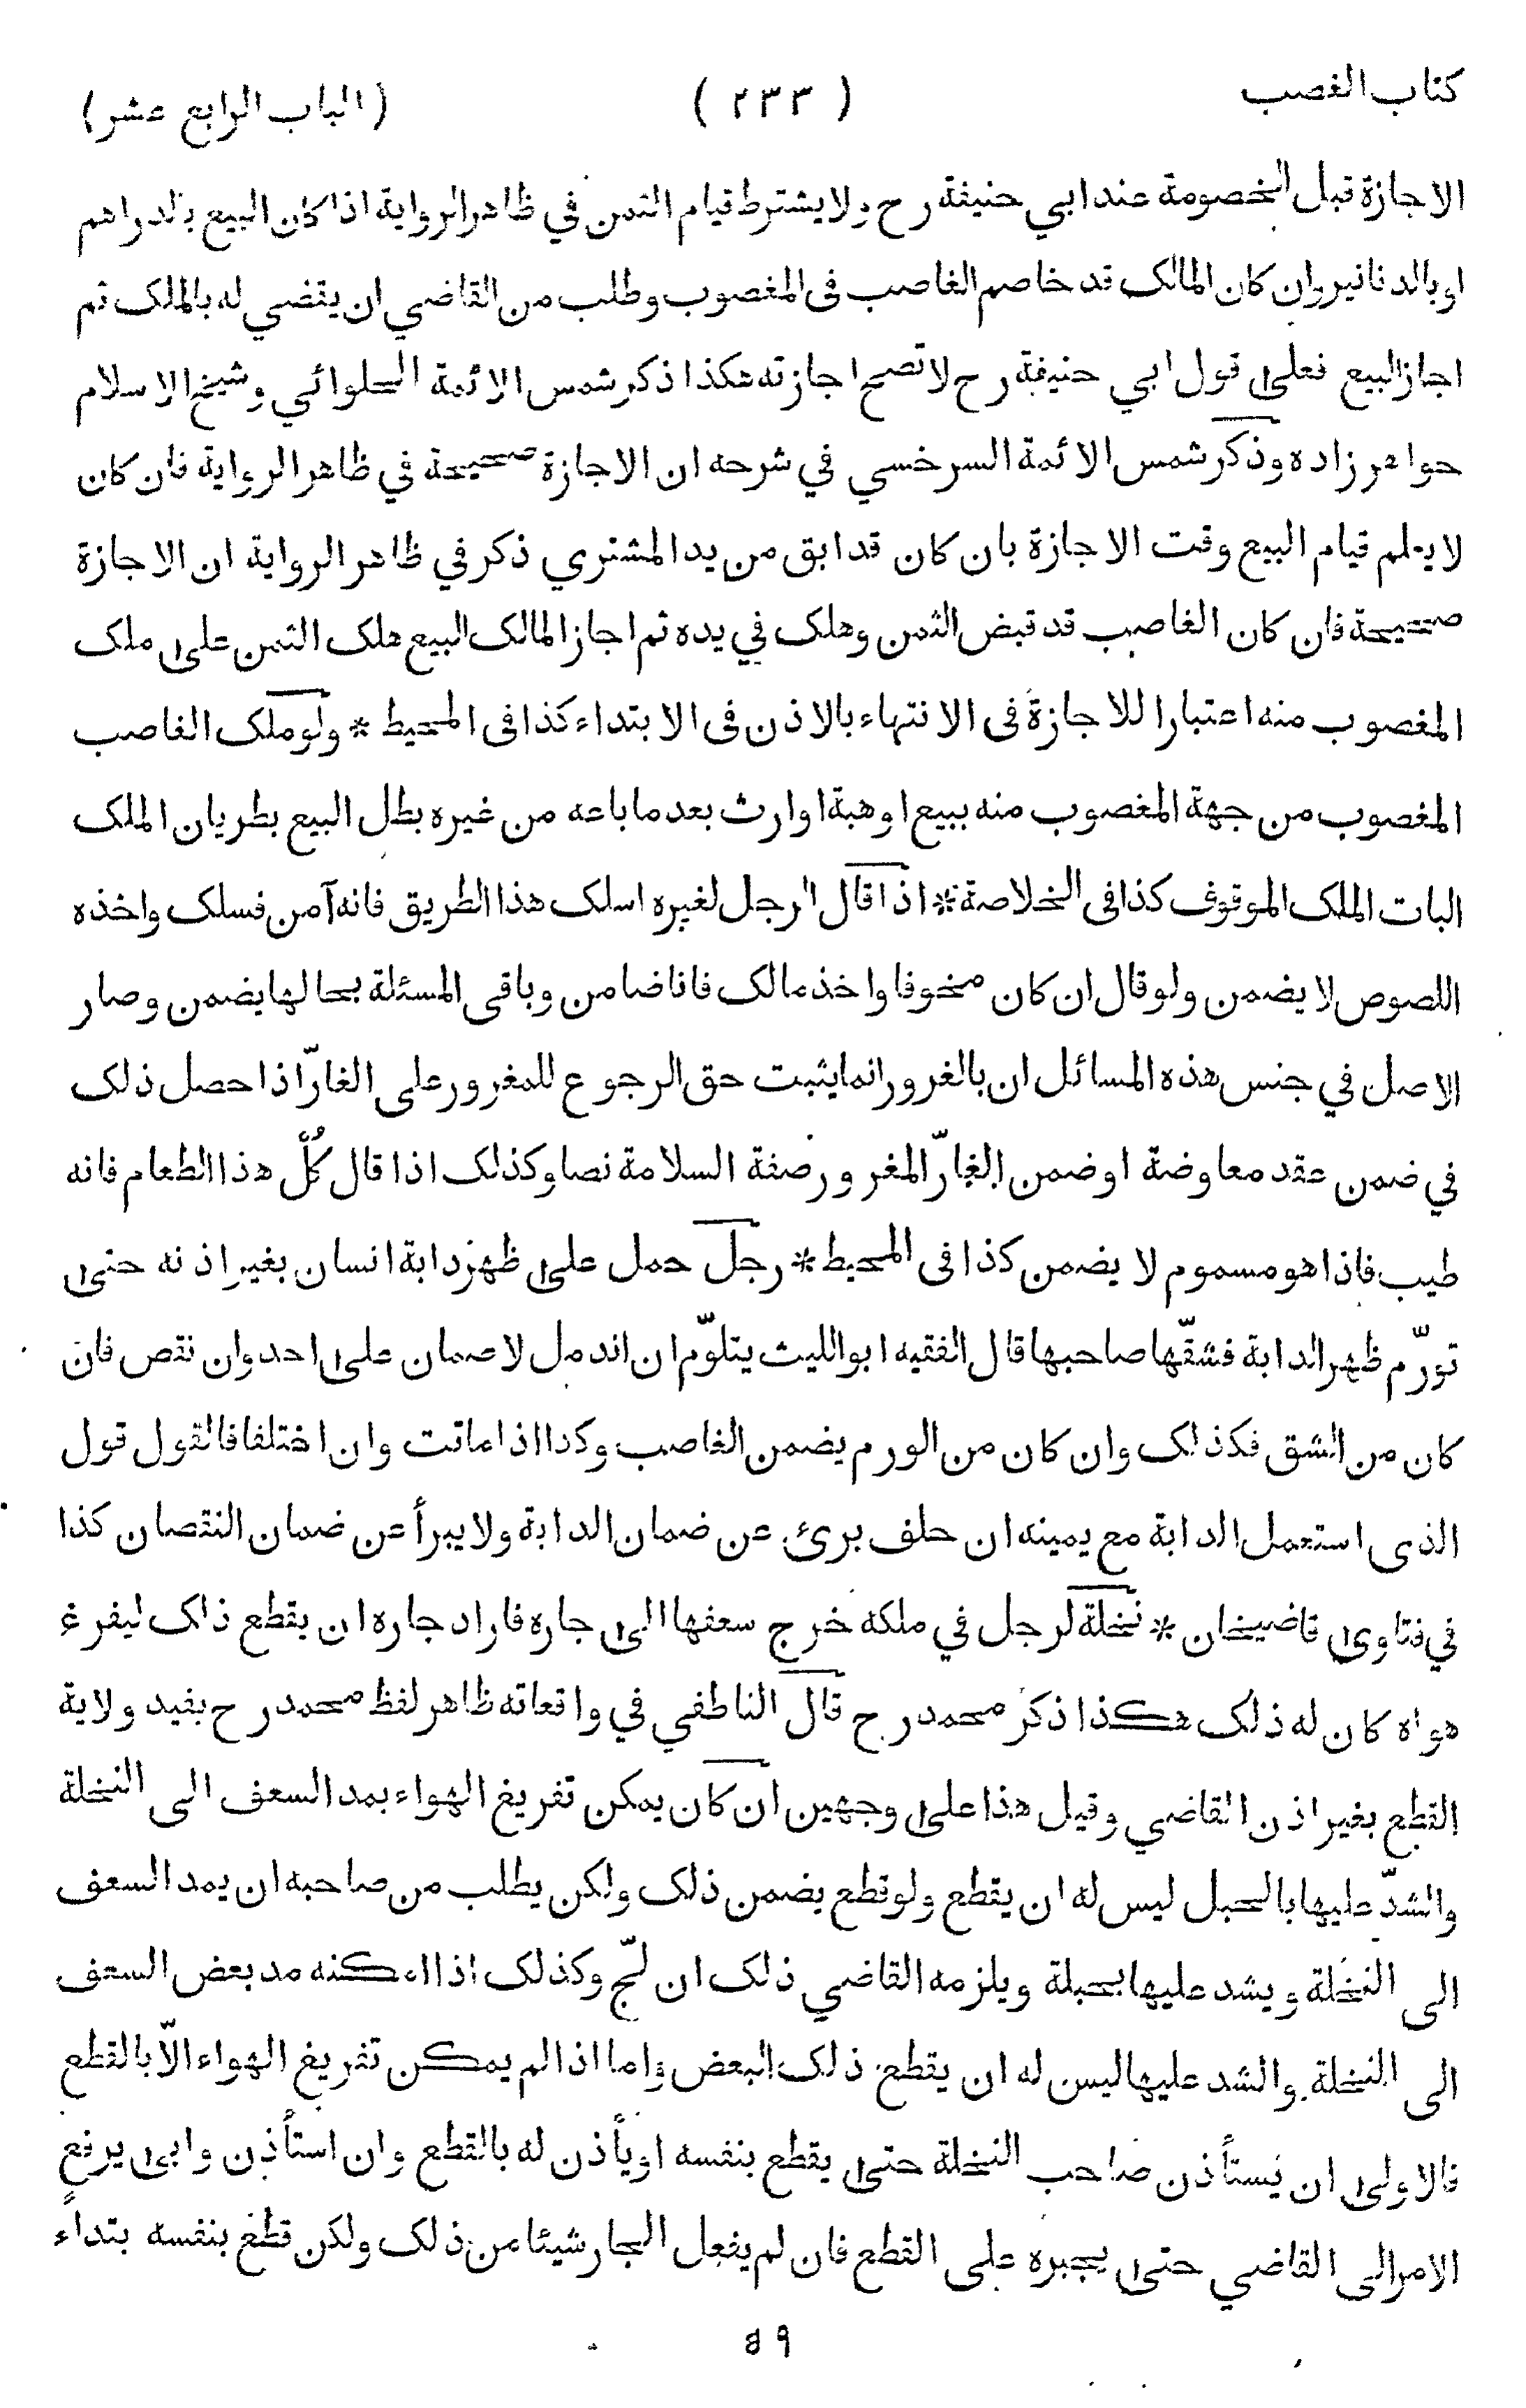 كتاب الغصب
( ٢٣٣ )
( الباب الرابع عشر )
الاجازة قبل الخصومة عند ابي حنيفة رح ولا يشترط قيام الثمن في ظاهر الرواية اذا كان البيع بالدراهم
او بالدنانير وان كان المالك قد خاصم الغاصب فى المغصوب وطلب من القاضي ان يقضي له بالملك ثم
اجاز البيع فعلى قول ابي حنيفة رح لا تصح اجازته هكذا ذكر شمس الائمة الحلوائي وشيخ الاسلام
خواهر زاده وذكر شمس الائمة السرخسي في شرحه ان الاجازة صحيحة في ظاهر الرواية فان كان
لا يعلم قيام البيع وقت الاجازة بان كان قد ابق من يد المشتري ذكر في ظاهر الرواية ان الاجازة
صحيحة فان كان الغاصب قد قبض الثمن وهلك في يده ثم اجاز المالك البيع هلك الثمن على ملك
المغصوب منه اعتبارا للاجازة فى الانتهاء بالاذن فى الابتداء كذا فى المحيط * ولو ملك الغاصب
المغصوب من جهة المغصوب منه ببيع او هبة او ارث بعد ما باعه من غيره بطل البيع بطريان الملك
البات الملك الموقوف كذا فى الخلاصة * اذا قال الرجل لغيره اسلك هذا الطريق فانه آمن فسلك واخذه
اللصوص لا يضمن ولو قال ان كان مخوفا واخذ مالك فانا ضامن وباقى المسئلة بحالها يضمن وصار
الاصل في جنس هذه المسائل ان بالغرور انما يثبت حق الرجوع للمغرور على الغارّ اذا حصل ذلك
في ضمن عقد معاوضة او ضمن الغارّ المغرور صفة السلامة نصا وكذلك اذا قال كُلْ هذا الطعام فانه
طيب فاذا هو مسموم لا يضمن كذا فى المحيط * رجل حمل على ظهر دابة انسان بغير اذنه حتى
تورّم ظهر الدابة فشقّها صاحبها قال الفقيه ابو الليث يتلوّم ان اندمل لا ضمان على احد وان نقص فان
كان من الشق فكذلك وان كان من الورم يضمن الغاصب وكذا اذا ماتت وان اختلفا فالقول قول
الذى استعمل الدابة مع يمينه ان حلف برئ عن ضمان الدابة ولا يبرأ عن ضمان النقصان كذا
في فتاوى قاضيخان * نخلة لرجل في ملكه خرج سعفها الى جاره فاراد جاره ان يقطع ذلك ليفرغ
هواه كان له ذلك هكذا ذكر محمد رح قال الناطفي في واقعاته ظاهر لفظ محمد رح يفيد ولاية
القطع بغير اذن القاضي وقيل هذا على وجهين ان كان يمكن تفريغ الهواء بمد السعف الى النخلة
والشدّ عليها بالحبل ليس له ان يقطع ولو قطع يضمن ذلك ولكن يطلب من صاحبه ان يمد السعف
الى النخلة ويشد عليها بحبلة ويلزمه القاضي ذلك ان لجّ وكذلك اذا امكنه مد بعض السعف
الى النخلة والشد عليها ليس له ان يقطع ذلك البعض واما اذا لم يمكن تفريغ الهواء الّا بالقطع
فالاولى ان يستأذن صاحب النخلة حتى يقطع بنفسه او يأذن له بالقطع وان استأذن وابى يرفع
الامر الى القاضي حتى يجبره على القطع فان لم يفعل الجار شيئا من ذلك ولكن قطع بنفسه بتداءً
٥٩